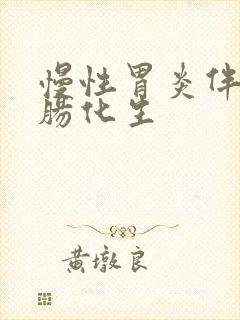 慢性胃炎伴
肠化生
黄墩良